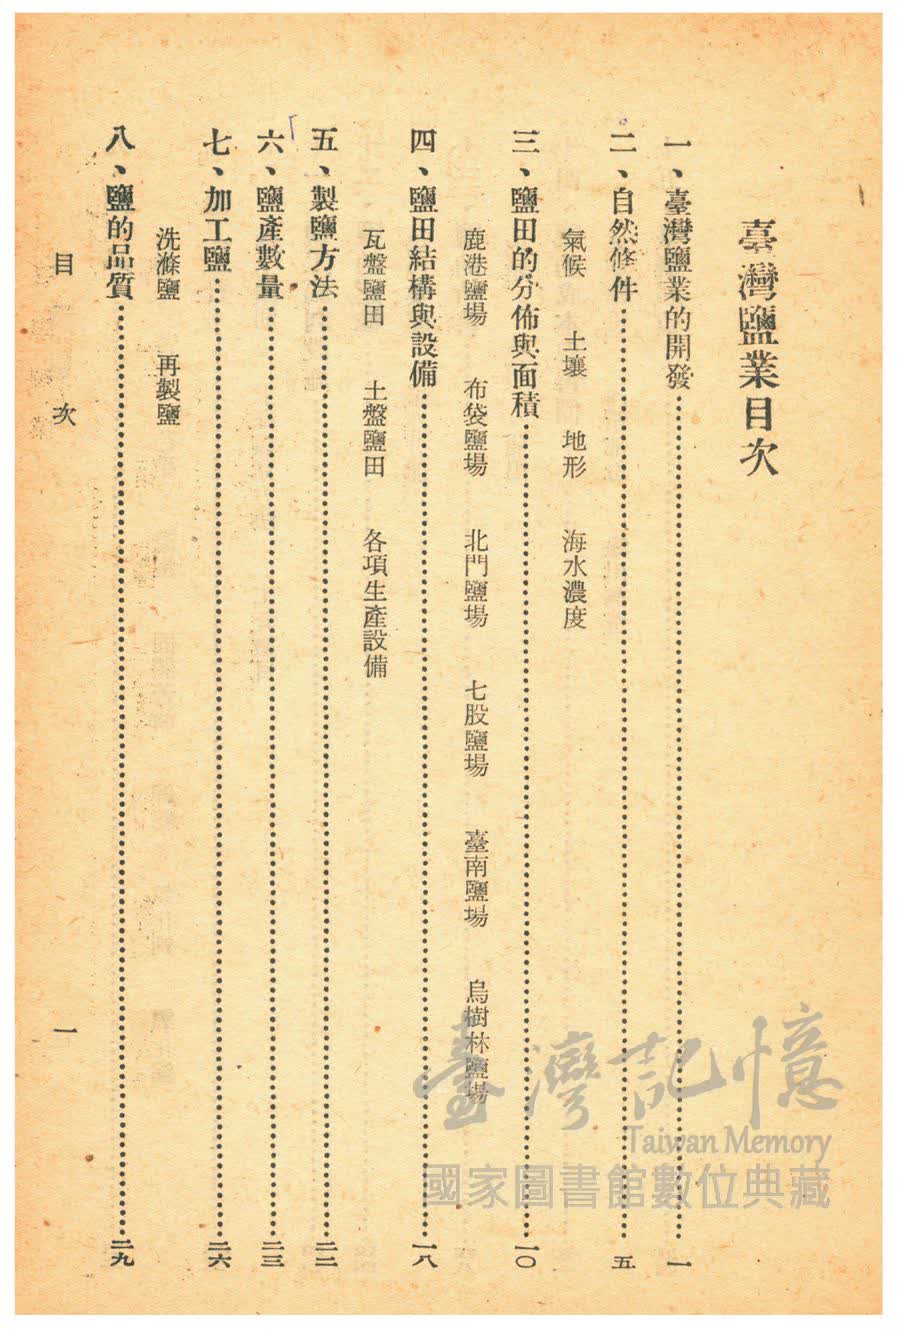 臺灣鹽業目次
一、臺灣鹽業的開發……一
二、自然條件……五
氣候 土壤 地形 海水濃度
三、鹽田的分佈與面積……一〇
鹿港鹽場 布袋鹽場 北門鹽場 七股鹽場 臺南鹽場 烏樹林鹽場
四、鹽田結構與設備……一八
瓦盤鹽田 土盤鹽田 各項生產設備
五、製鹽方法……二二
六、鹽產數量……二三
七、加工鹽……二六
洗滌鹽 再製鹽
八、鹽的品質……二九
目次 一
臺灣記憶
Taiwan Memory
國家圖書館數位典藏